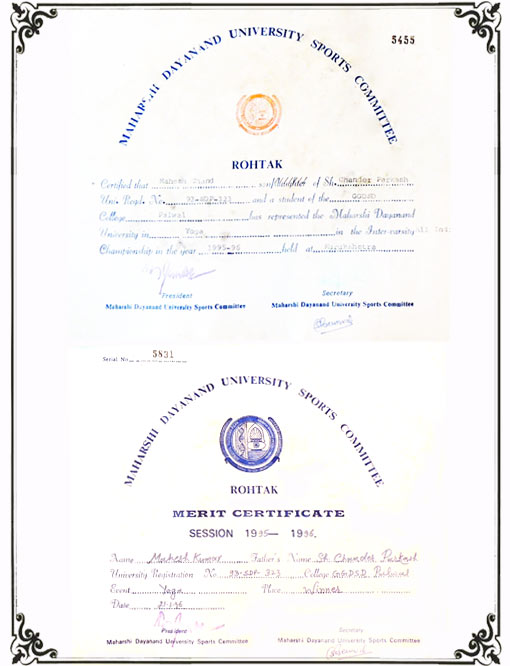 5455
MAHARSHI DAYANAND UNIVERSITY SPORTS COMMITTEE
ROHTAK
Certified that Mahesh Chand son/ of Sh. Chander Parkash
Uni. Regd. No. and a student of the GGDSD
College Palwal has represented the Maharshi Dayanand
University in Yoga in the Inter-varsity
Championship in the year 1995-96 held at Kurukshetra
President
Maharshi Dayanand University Sports Committee
Secretary
Maharshi Dayanand University Sports Committee
Serial No. 5831
MAHARSHI DAYANAND UNIVERSITY SPORTS COMMITTEE
ROHTAK
MERIT CERTIFICATE
SESSION 1995— 1996.
Name Mahesh Kumar Father's Name Sh Chander Parkash
University Registration No. College GGDSD Palwal
Event Yoga Place Winner
Date
President
Maharshi Dayanand University Sports Committee
Secretary
Maharshi Dayanand University Sports Committee